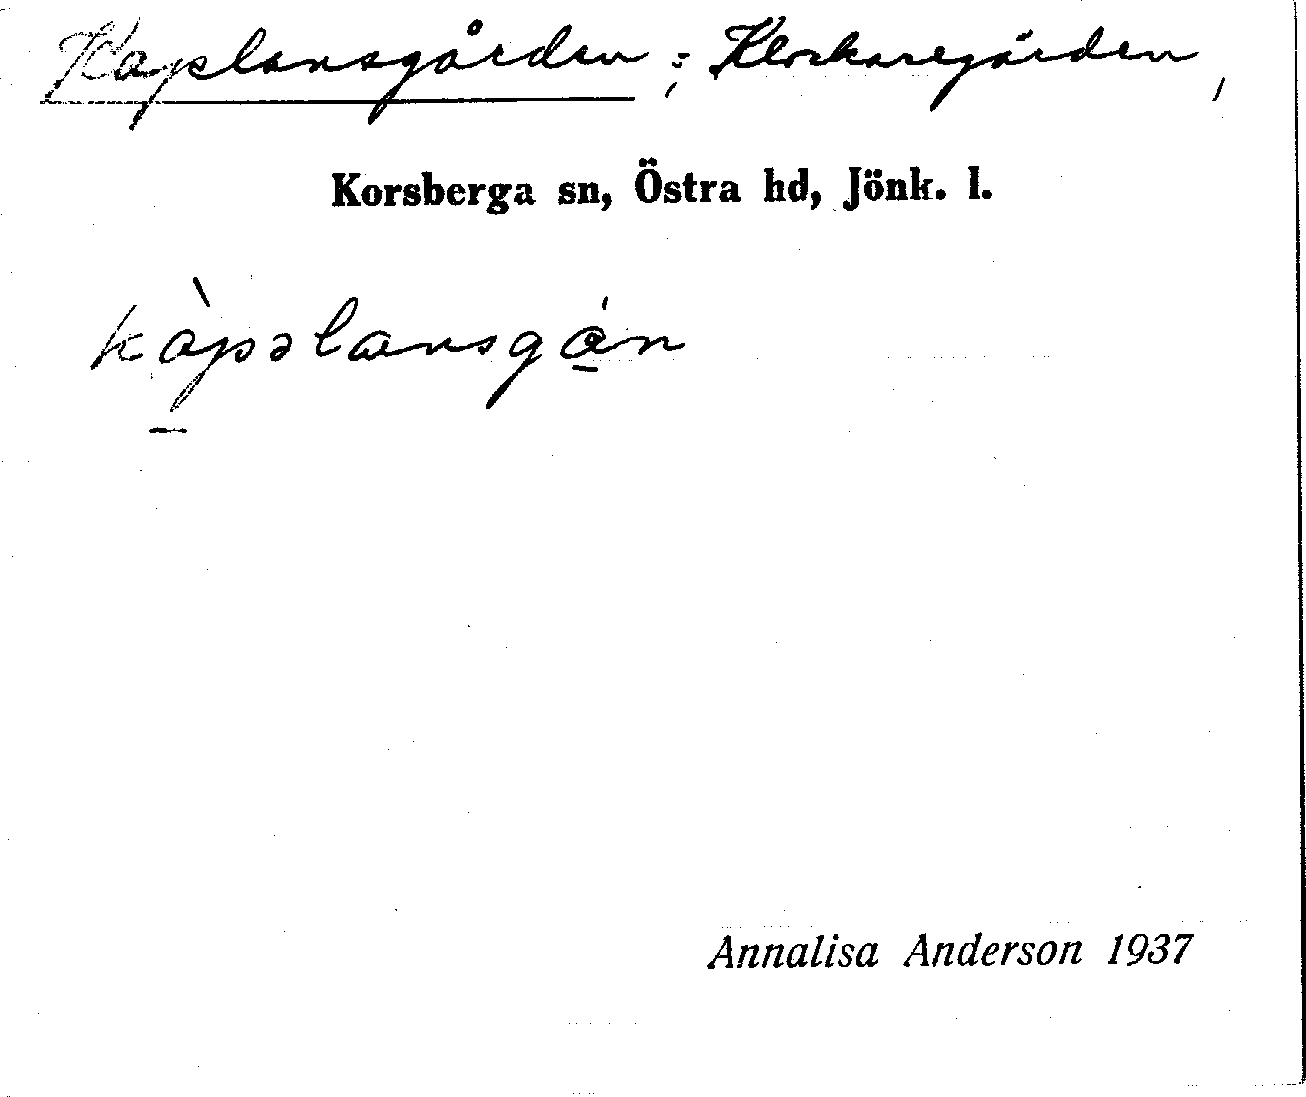 Kaplansgården; Klockaregården,
Korsberga sn, Östra hd, Jönk. l.
kàpəlansgɑ́n
Annalisa Anderson 1937